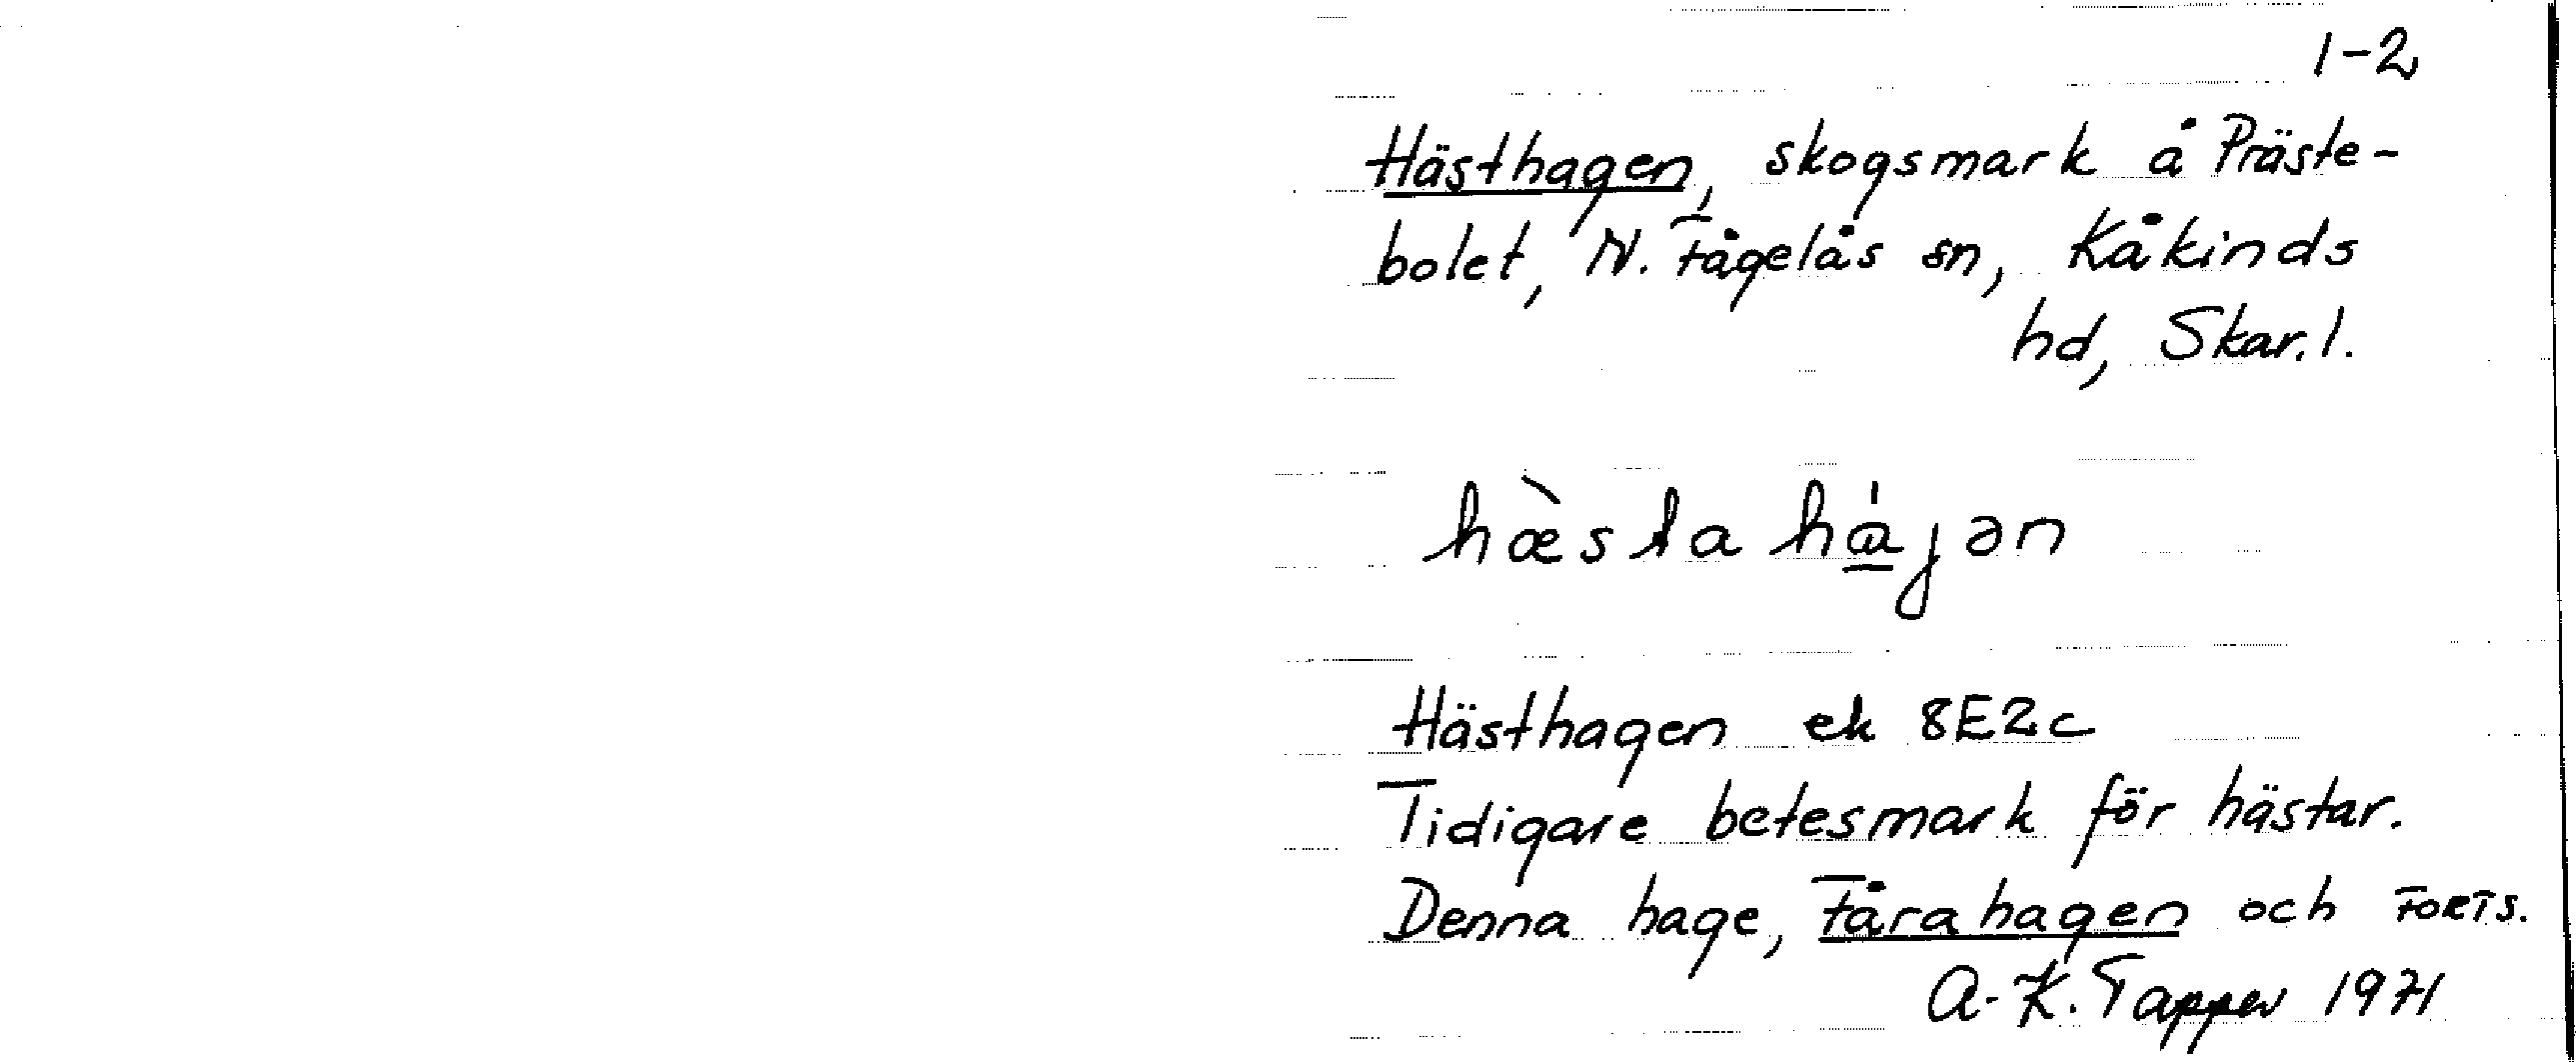 1-2
Hästhagen, skogsmark å Präste-
bolet, N. Fågelås sn, Kåkinds
hd, Skar. l.
hæ̀stahá̱jən
Hästhagen ek 8E2c
Tidigare betesmark för hästar.
Denna hage, Fårahagen och FORTS.
A-K. Tapper 1971